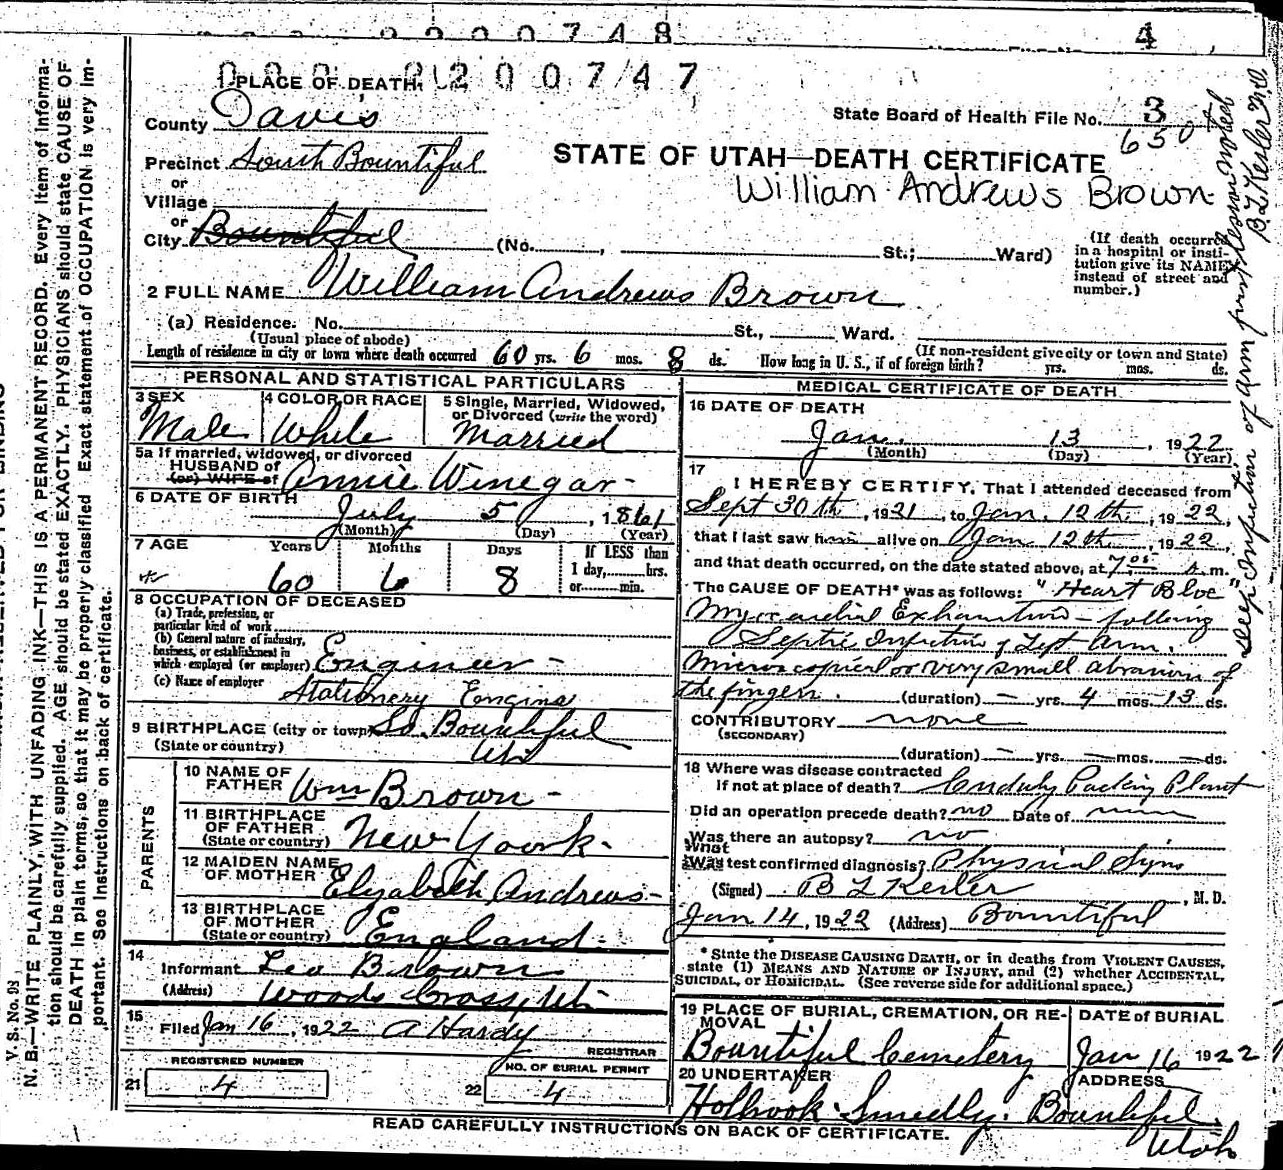 8 2 0 0 7 4 8
4
0 0 0 8 2 0 0 7 4 7
PLACE OF DEATH.
County Davis
State Board of Health File No. 3
650
Precinct South Bountiful
STATE OF UTAH—DEATH CERTIFICATE
William Andrews Brown
or
Village
or
City. Bountiful (No. , St.; Ward)
(If death occurred in a hospital or institution give its NAME instead of street and number.)
2 FULL NAME William Andrews Brown
(a) Residence. No. St., Ward.
(Usual place of abode)
(If non-resident give city or town and State)
Length of residence in city or town where death occurred 60 yrs. 6 mos. 8 ds. How long in U. S., if of foreign birth? yrs. mos. ds.
PERSONAL AND STATISTICAL PARTICULARS
3 SEX
Male
4 COLOR OR RACE
White
5 Single, Married, Widowed,
or Divorced (write the word)
Married
5a If married, widowed, or divorced
HUSBAND of
(or) WIFE of Annie Winegar
6 DATE OF BIRTH
July 5, 1861
(Month) (Day) (Year)
7 AGE Years Months Days If LESS than
1 day, hrs.
or min.
60 6 8
8 OCCUPATION OF DECEASED
(a) Trade, profession, or
particular kind of work
(b) General nature of industry,
business, or establishment in
which employed (or employer) Engineer
(c) Name of employer
Stationery Engine
9 BIRTHPLACE (city or town) So. Bountiful
(State or country) Ut
PARENTS
10 NAME OF
FATHER Wm Brown
11 BIRTHPLACE
OF FATHER
(State or country) New Yoork
12 MAIDEN NAME
OF MOTHER Elyabeth Andrews
13 BIRTHPLACE
OF MOTHER
(State or country) England
14
Informant Leo Brown
(Address) Woods Cross, Ut
15
Filed Jan 16, 1922 A Hardy
REGISTRAR
REGISTERED NUMBER
21 4
NO. OF BURIAL PERMIT
22 4
MEDICAL CERTIFICATE OF DEATH
16 DATE OF DEATH
Jan. 13, 1922
(Month) (Day) (Year)
17
I HEREBY CERTIFY, That I attended deceased from
Sept 30th, 1921, to Jan. 12th, 1922,
that I last saw him alive on Jan 12th, 1922,
and that death occurred, on the date stated above, at 7 A m.
The CAUSE OF DEATH* was as follows: "Heart Bloc"
Myocardial Exhaustion - following
Septic Infection of Left Arm.
Microscopical or very small abrasion of
the fingers. (duration) — yrs. 4 mos. 13 ds.
CONTRIBUTORY none
(SECONDARY)
(duration) — yrs. — mos. — ds.
18 Where was disease contracted
If not at place of death? Cudahy Packing Plant
Did an operation precede death? no Date of
Was there an autopsy? no
What
Was test confirmed diagnosis? Physical Signs
(Signed) B L Kesler, M. D.
Jan 14, 1922 (Address) Bountiful
* State the DISEASE CAUSING DEATH, or in deaths from VIOLENT CAUSES,
state (1) MEANS AND NATURE OF INJURY, and (2) whether ACCIDENTAL,
SUICIDAL, or HOMICIDAL. (See reverse side for additional space.)
19 PLACE OF BURIAL, CREMATION, OR RE-
MOVAL
Bountiful Cemetery
DATE of BURIAL
Jan 16 1922
20 UNDERTAKER
Holbrook Smedly.
ADDRESS
Bountiful,
Utah
READ CAREFULLY INSTRUCTIONS ON BACK OF CERTIFICATE.
V. S. No. 98
N. B.—WRITE PLAINLY, WITH UNFADING INK—THIS IS A PERMANENT RECORD. Every item of informa-
tion should be carefully supplied. AGE should be stated EXACTLY. PHYSICIANS should state CAUSE OF
DEATH in plain terms, so that it may be properly classified. Exact statement of OCCUPATION is very im-
portant. See instructions on back of certificate.
Deep Infection of arm first lesion noted
B.L. Kesler M.D.